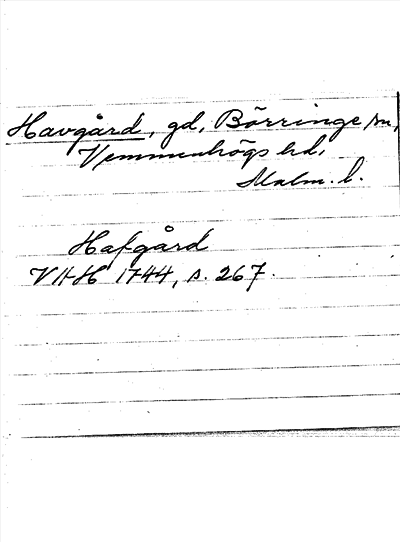 Havgård, gd, Börringe sn,
Vemmenhögs hd,
Malm. l.
Hafgård
VHH 1744, s. 267.